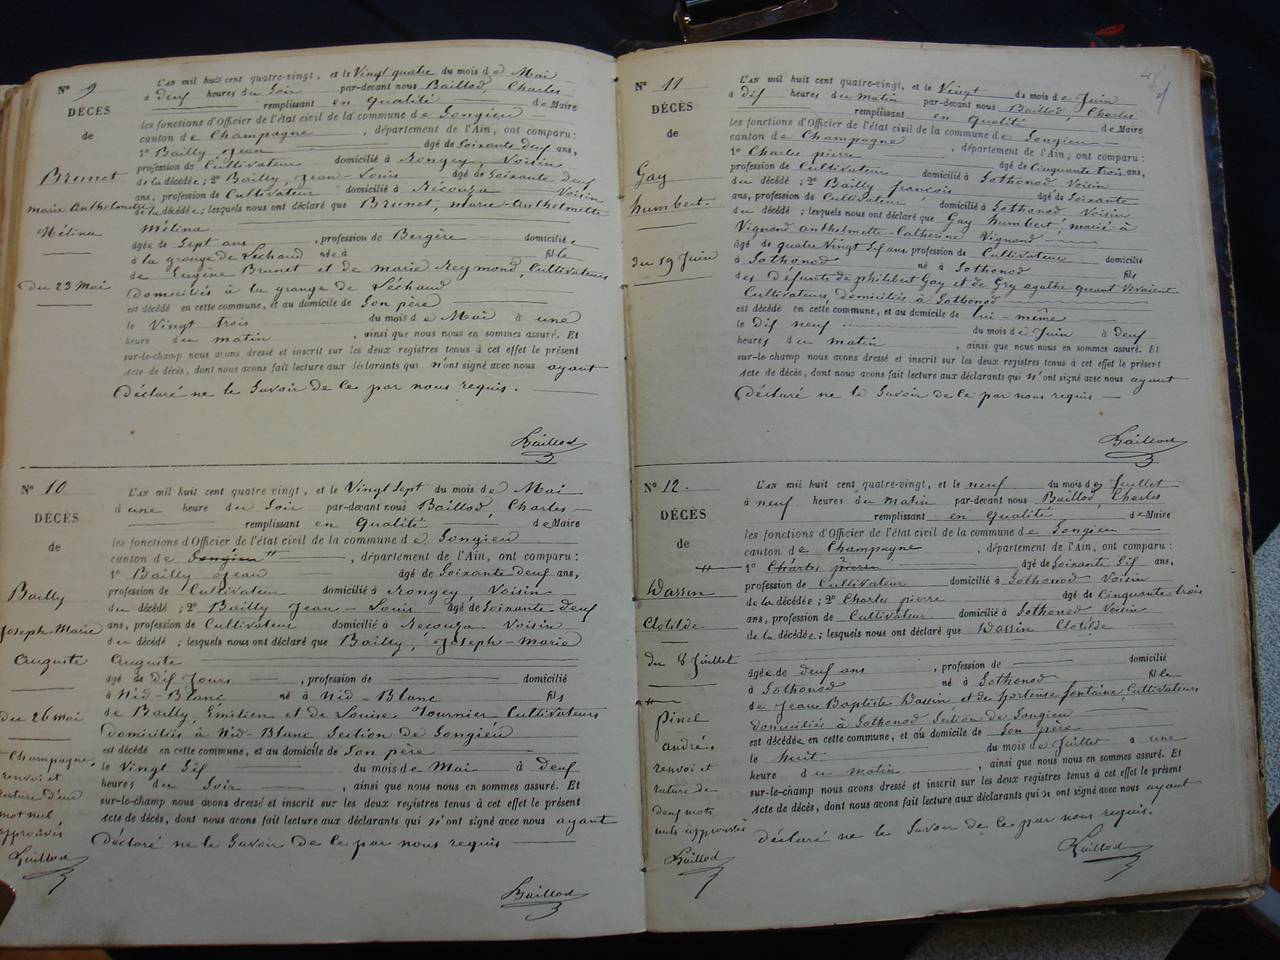 N° 9
DÉCÈS
de
Brunet
marie Anthelmette
Mélina
du 23 Mai
L'AN mil huit cent quatre-vingt, et le Vingt quatre du mois de Mai
à deux heures du Soir par-devant nous Baillod, Charles
remplissant en qualité de Maire
les fonctions d'Officier de l'état civil de la commune de Songieu
canton de Champagne, département de l'Ain, ont comparu:
1° Bailly Jean âgé de Soixante deux ans,
profession de Cultivateur domicilié à Rongey, Voisin
de la décédée; 2° Bailly, Jean-Louis âgé de Soixante deux
ans, profession de Cultivateur domicilié à Voisin
de la décédée; lesquels nous ont déclaré que Brunet, marie-Anthelmette
Mélina
âgée de Sept ans, profession de Bergère domicilié
à la grange de Léchaud née à fille
de Eugène Brunet et de marie Reymond, Cultivateurs
Domiciliés à la grange de Léchaud
est décédé en cette commune, et au domicile de Son père
le Vingt trois du mois de Mai à une
heure du matin, ainsi que nous nous en sommes assuré. Et
sur-le-champ nous avons dressé et inscrit sur les deux registres tenus à cet effet le présent
Acte de décès, dont nous avons fait lecture aux déclarants qui n'ont signé avec nous ayant
Déclaré ne le Savoir de Ce par nous requis.
Baillod
N° 10
DÉCÈS
de
Bailly
Joseph-Marie
Auguste
du 26 mai
Champagne,
renvoi et
rature d'un
mot nul
approuvés
Baillod
L'AN mil huit cent quatre-vingt, et le Vingt Sept du mois de Mai
à une heure du Soir par-devant nous Baillod, Charles
remplissant en Qualité de Maire
les fonctions d'Officier de l'état civil de la commune de Songieu
canton de Songieu, département de l'Ain, ont comparu:
1° Bailly Jean âgé de Soixante deux ans,
profession de Cultivateur domicilié à Rongey, Voisin
du décédé; 2° Bailly Jean-Louis âgé de Soixante deux
ans, profession de Cultivateur domicilié à Voisin
du décédé; lesquels nous ont déclaré que Bailly, Joseph-Marie
Auguste
âgé de Dix Jours, profession de domicilié
à Nid-Blanc né à Nid-Blanc fils
de Bailly, Emilien et de Louise Tournier Cultivateurs
Domiciliés à Nid-Blanc Section de Songieu
est décédé en cette commune, et au domicile de Son père
le Vingt Six du mois de Mai à deux
heures du Soir, ainsi que nous nous en sommes assuré. Et
sur-le-champ nous avons dressé et inscrit sur les deux registres tenus à cet effet le présent
Acte de décès, dont nous avons fait lecture aux déclarants qui n'ont signé avec nous ayant
Déclaré ne le Savoir De Ce par nous requis
Baillod
N° 11
DÉCÈS
de
Gay
humbert.
du 19 Juin
L'AN mil huit cent quatre-vingt, et le Vingt du mois de Juin
à dix heures du matin par-devant nous Baillod, Charles
remplissant en qualité de Maire
les fonctions d'Officier de l'état civil de la commune de Songieu
canton de Champagne, département de l'Ain, ont comparu:
1° Charles pierre âgé de Cinquante trois ans,
profession de Cultivateur domicilié à Sothonod Voisin
du décédé; 2° Bailly françois âgé de Soixante
ans, profession de Cultivateur domicilié à Sothonod Voisin
du décédé; lesquels nous ont déclaré que Gay humbert, marié à
Vignond anthelmette-Catherine Vignond
âgé de quatre Vingt Six ans, profession de Cultivateur domicilié
à Sothonod né à Sothonod fils
des Défunts de philibert Gay et de Gry agathe quant Vivaient
Cultivateurs, domiciliés à Sothonod
est décédé en cette commune, et au domicile de lui-même
le dix neuf du mois de Juin à deux
heures du matin, ainsi que nous nous en sommes assuré. Et
sur-le-champ nous avons dressé et inscrit sur les deux registres tenus à cet effet le présent
Acte de décès, dont nous avons fait lecture aux déclarants qui n'ont signé avec nous ayant
Déclaré ne le Savoir de Ce par nous requis
Baillod
N° 12.
DÉCÈS
de
Wassin
Clotilde
du 8 Juillet
pinel
andré.
renvoi et
rature de
deux mots
nuls approuvés
Baillod
L'AN mil huit cent quatre-vingt, et le neuf du mois de Juillet
à neuf heures du matin par-devant nous Baillod, Charles
remplissant en qualité de Maire
les fonctions d'Officier de l'état civil de la commune de Songieu
canton de Champagne, département de l'Ain, ont comparu:
1° Charles pierre âgé de Soixante Six ans,
profession de Cultivateur domicilié à Sothonod Voisin
de la décédée; 2° Charles pierre âgé de Cinquante trois
ans, profession de Cultivateur domicilié à Sothonod Voisin
de la décédée; lesquels nous ont déclaré que Wassin Clotilde
âgée de deux ans, profession de domicilié
à Sothonod né à Sothonod fille
de Jean Baptiste Wassin et de hortense fontaine, Cultivateurs
domiciliés à Sothonod Section de Songieu
est décédée en cette commune, et au domicile de Son père
le huit du mois de Juillet à une
heure du matin, ainsi que nous nous en sommes assuré. Et
sur-le-champ nous avons dressé et inscrit sur les deux registres tenus à cet effet le présent
Acte de décès, dont nous avons fait lecture aux déclarants qui n'ont signé avec nous ayant
déclaré ne le Savoir de Ce par nous requis.
Baillod